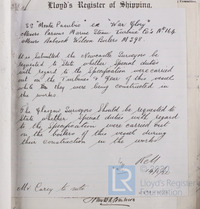 Lloyd's Register of Shipping.
"Monte Pasubio" ex "War Glory"
Messrs Parsons Marine Steam Turbine Co's No 164
Messrs Richard Wilson Boilers
It is submitted the Newcastle Surveyors be
requested to state whether special duties
with regard to the Specification were carried
out on the Turbines & Gear of this vessel
while they were being constructed in
the works
The Glasgow Surveyors should be requested to
state whether special duties with regard
to the specification were carried out
on the boilers of this vessel during
their construction in the works
Mr Carey to note
Lloyd's Register
Foundation